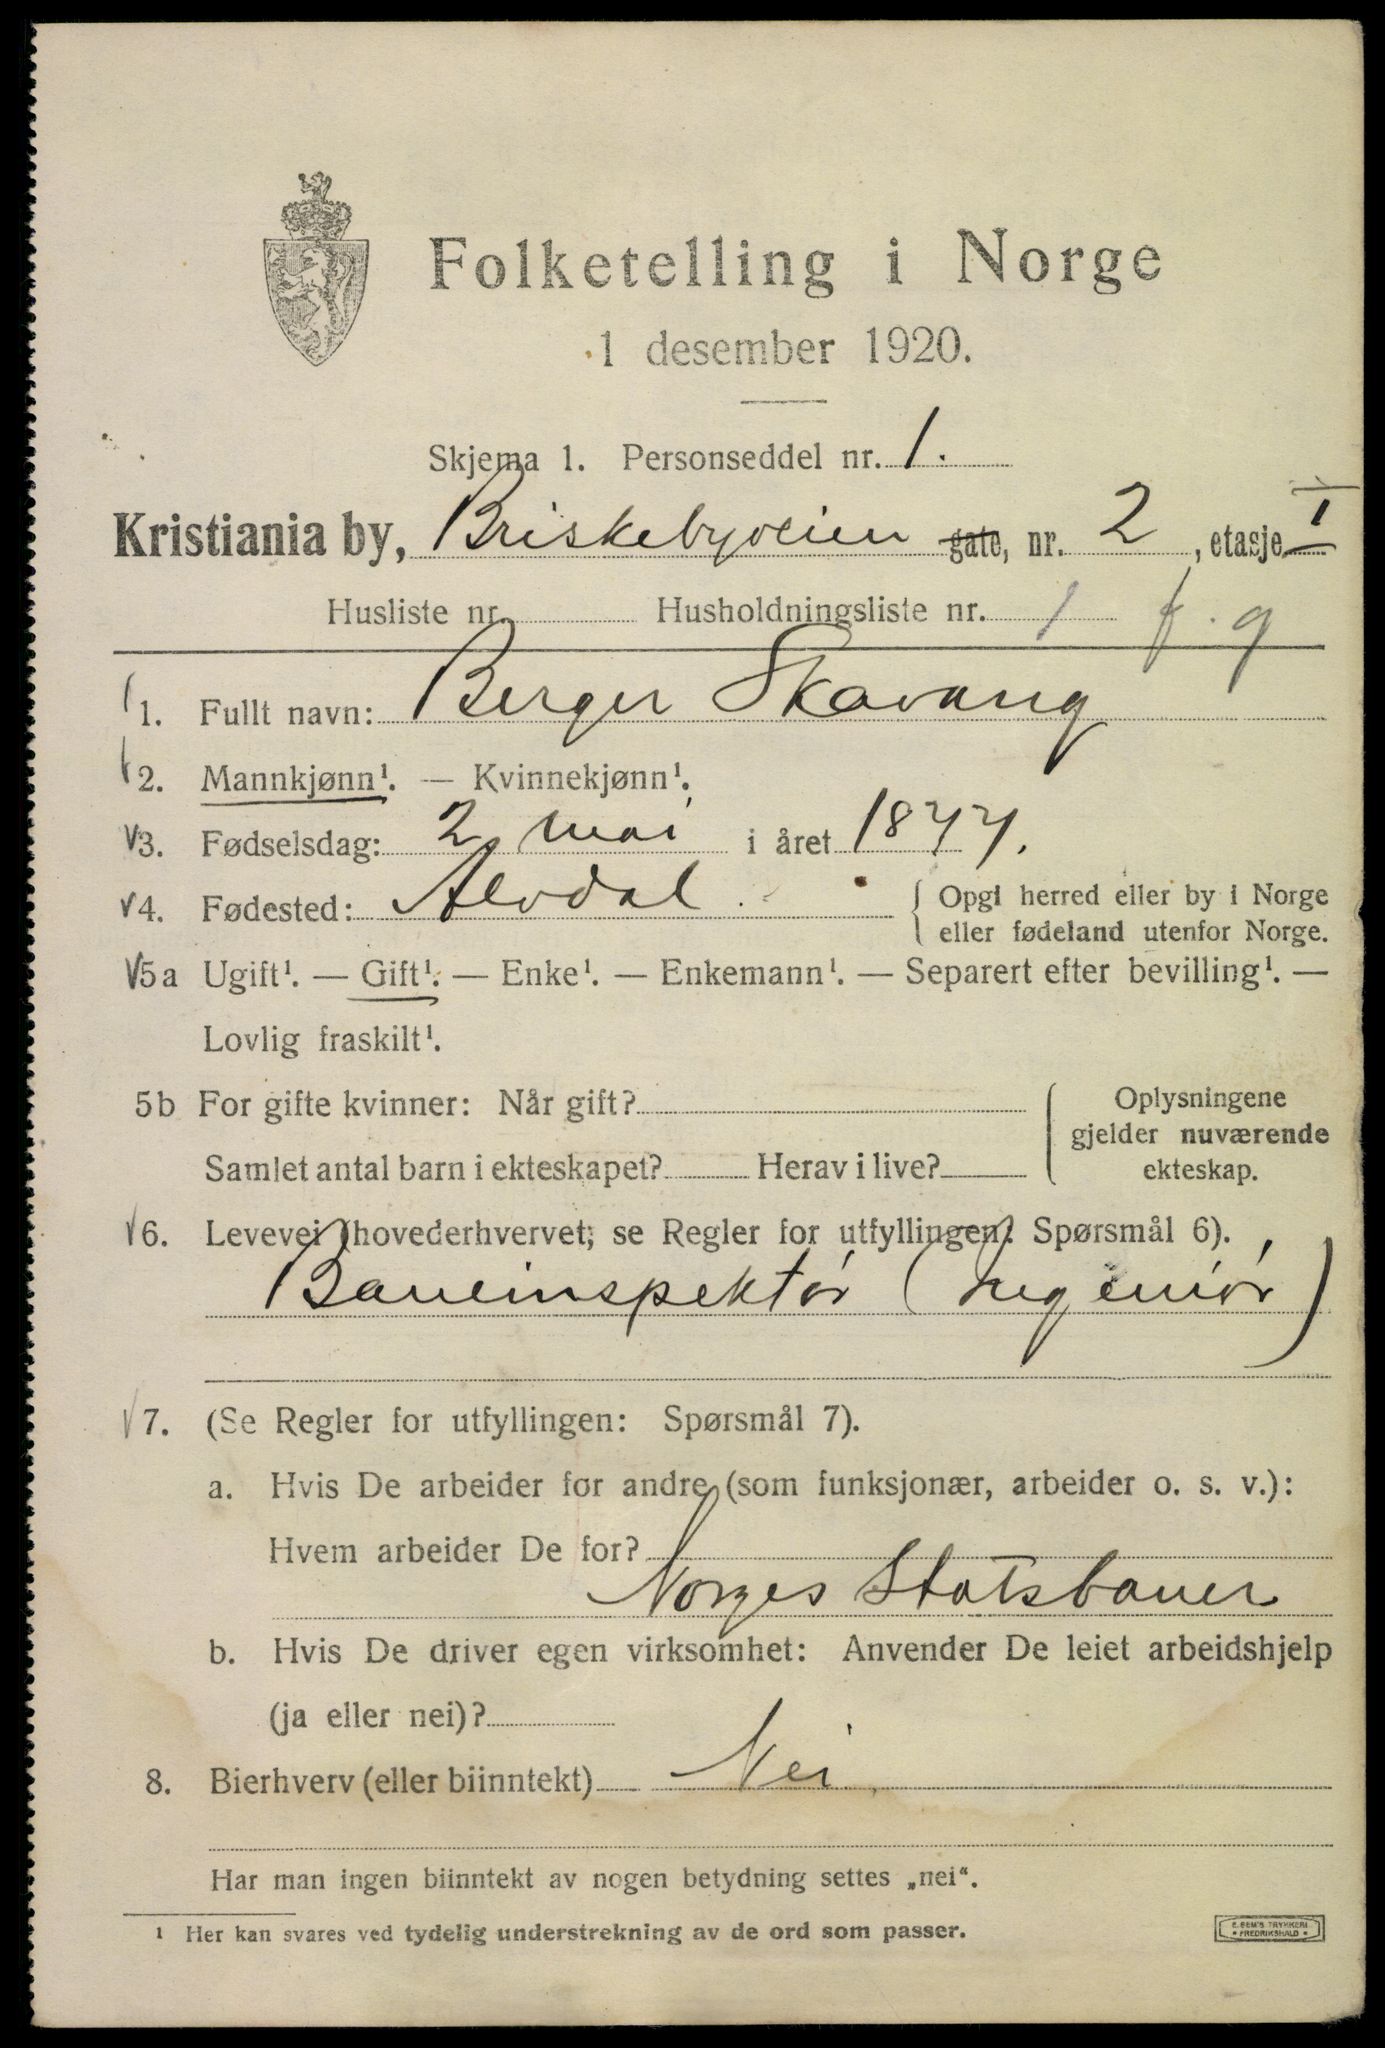 Folketelling i Norge
1 desember 1920.
Skjema 1. Personseddel nr. 1.
Kristiania by, Briskebyveien gate, nr. 2, etasje I
Husliste nr. Husholdningsliste nr. 1 f. g
1. Fullt navn: Berger Skavang
2. Mannkjønn¹. — Kvinnekjønn¹.
3. Fødselsdag: 2 mai i året 1877.
4. Fødested: Alvdal { Opgi herred eller by i Norge
eller fødeland utenfor Norge.
5a Ugift¹. — Gift¹. — Enke¹. — Enkemann¹. — Separert efter bevilling¹. —
Lovlig fraskilt¹.
5b For gifte kvinner: Når gift? { Oplysningene
gjelder nuværende
Samlet antal barn i ekteskapet? Herav i live? ekteskap.
6. Levevei (hovederhvervet; se Regler for utfyllingen: Spørsmål 6).
Baneinspektør (Ingeniør)
7. (Se Regler for utfyllingen: Spørsmål 7).
a. Hvis De arbeider for andre (som funksjonær, arbeider o. s. v.):
Hvem arbeider De for?
Norges Statsbaner
b. Hvis De driver egen virksomhet: Anvender De leiet arbeidshjelp
(ja eller nei)?
8. Bierhverv (eller biinntekt) Nei.
Har man ingen biinntekt av nogen betydning settes „nei“.
¹ Her kan svares ved tydelig understrekning av de ord som passer.
E. SEM'S TRYKKERI
• FREDRIKSHALD •